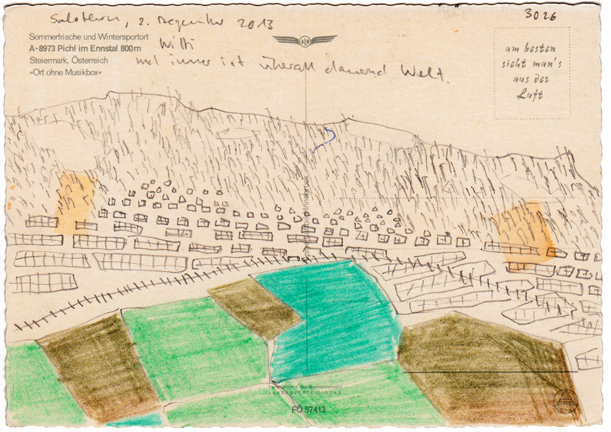 Solothurn, 2. Dezember 2013
3026
Sommerfrische und Wintersportort
A-8973 Pichl im Ennstal 800 m
Steiermark, Österreich
»Ort ohne Musikbox«
Willi
und immer ist überall dauernd Welt.
am besten
sieht man's
aus der
Luft
LANDESVERTEIDIGUNG
FÖ 57413